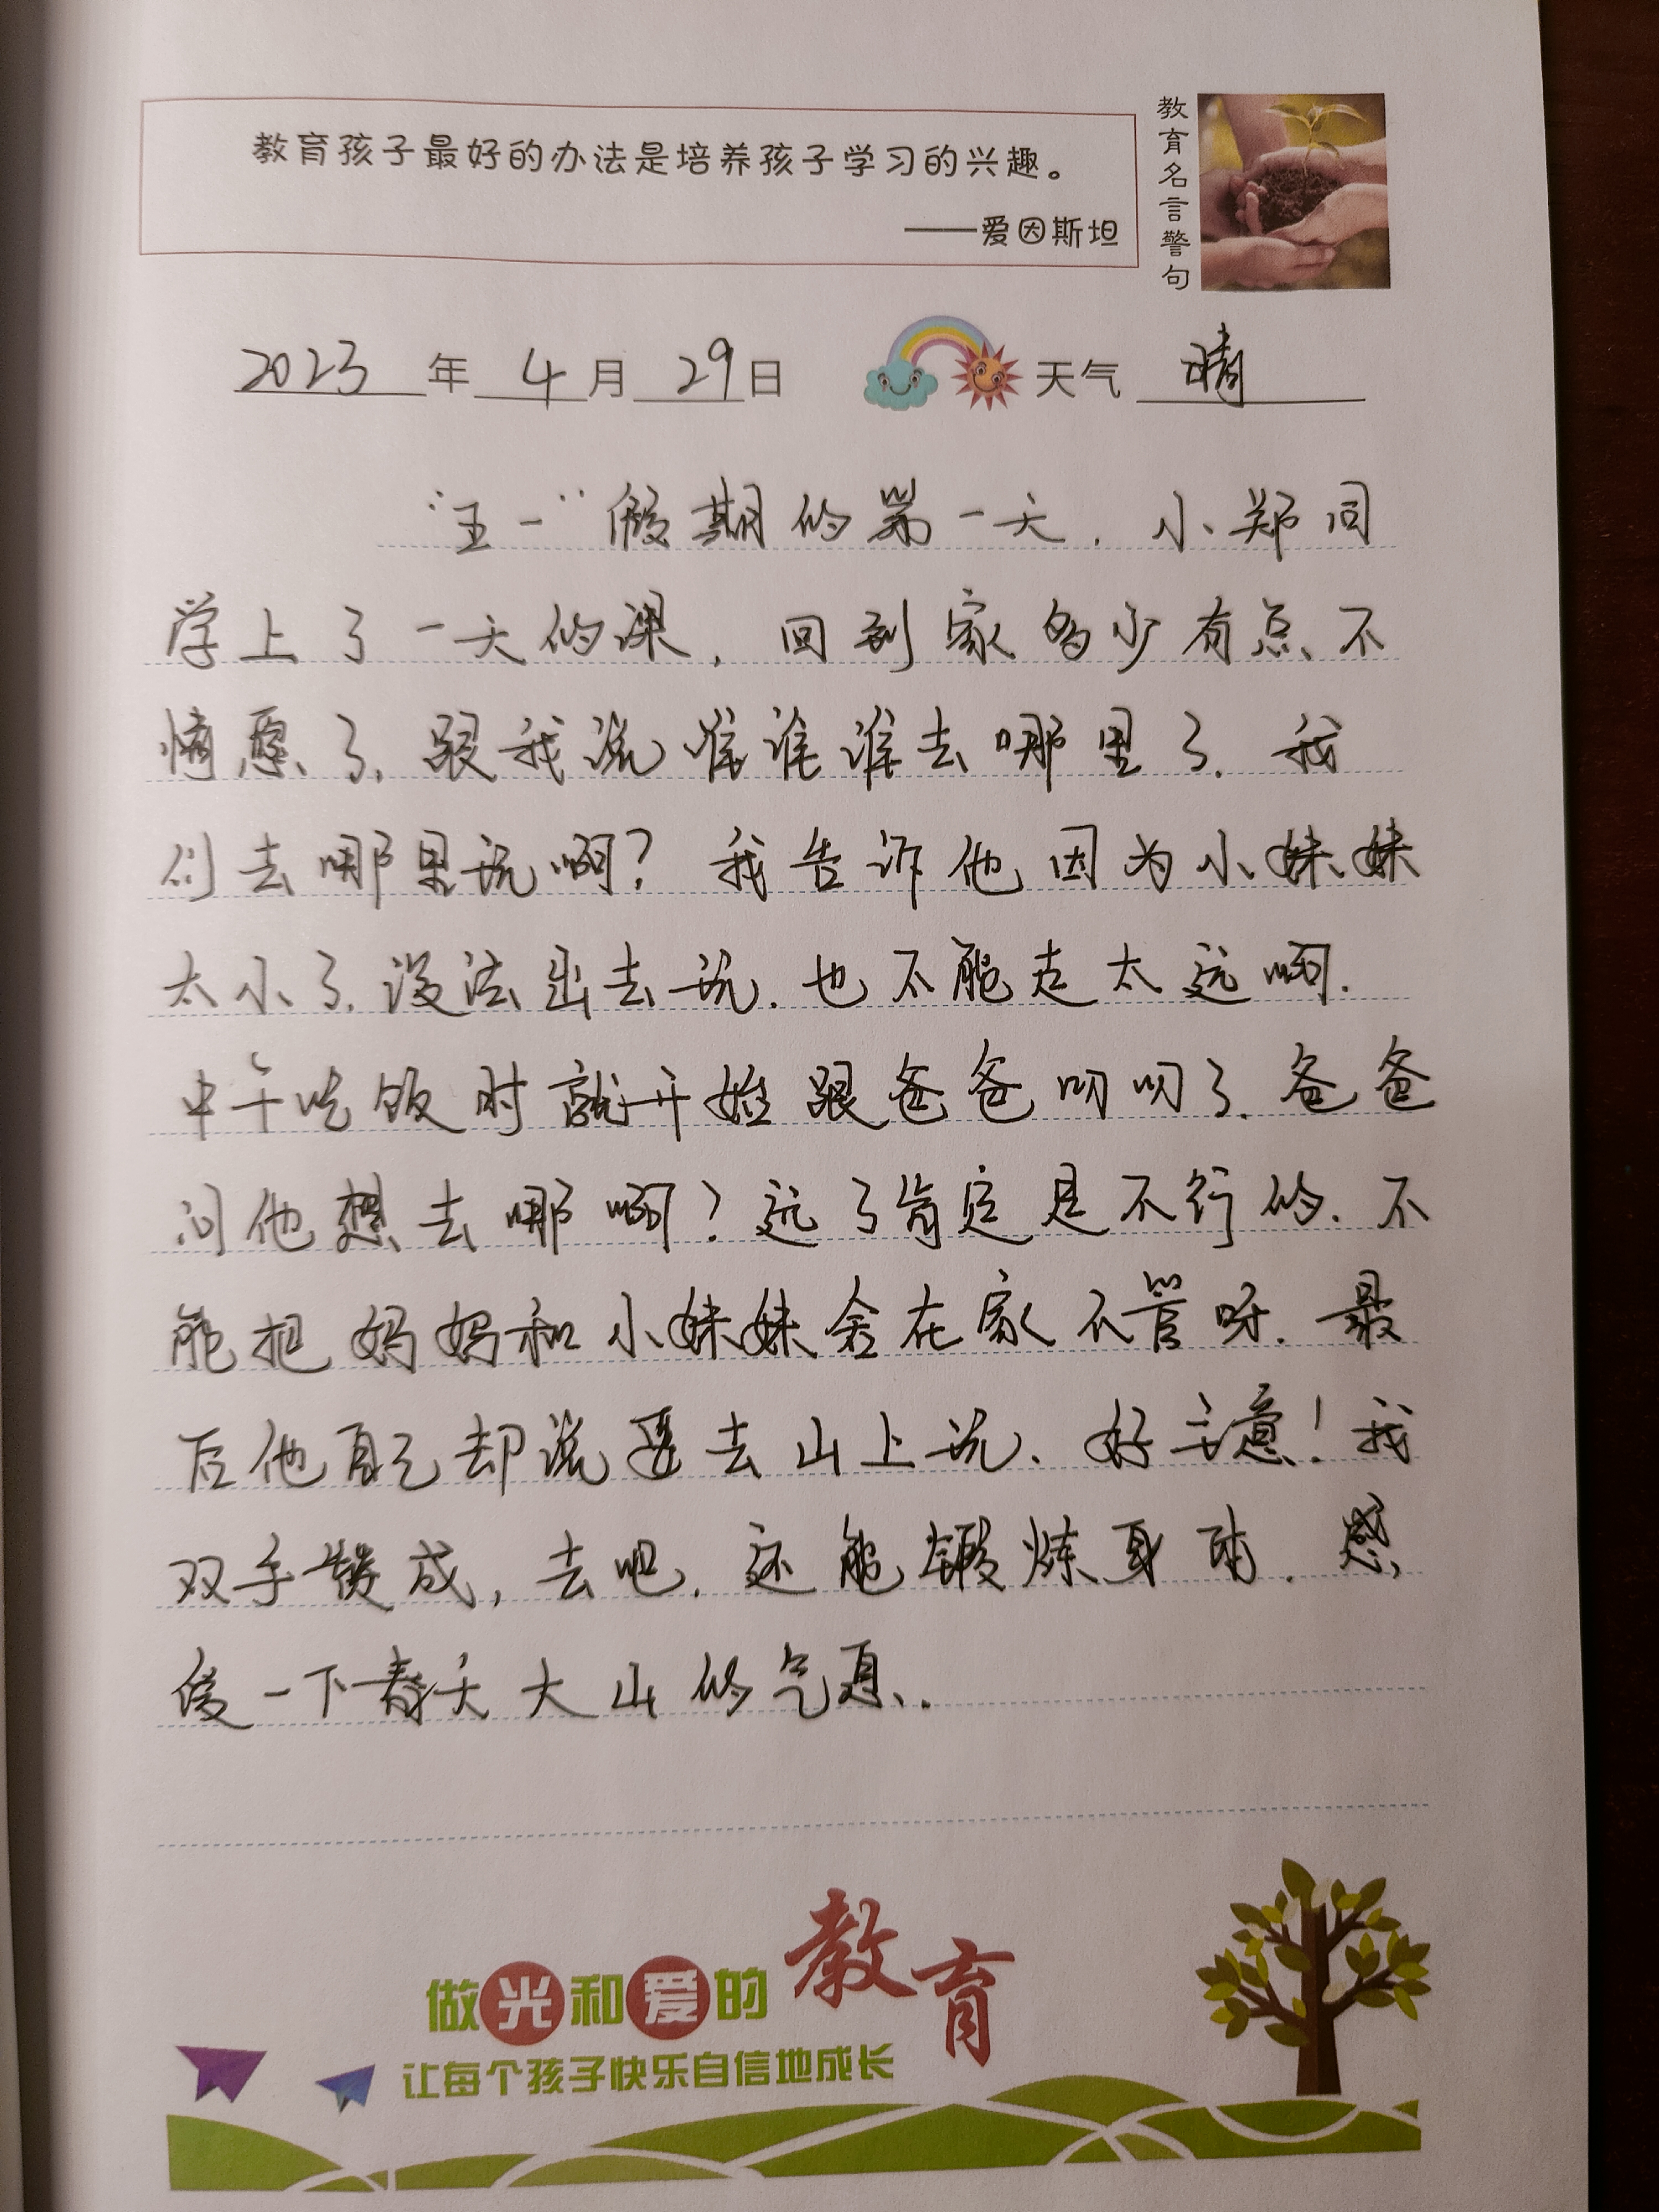 教育孩子最好的办法是培养孩子学习的兴趣。
——爱因斯坦
教育名言警句
2023年4月29日 天气 晴
“五一”假期的第一天，小郑同
学上了一天的课，回到家多少有点不
情愿了，跟我说谁谁谁去哪里了，我
们去哪里玩啊？我告诉他因为小妹妹
太小了，没法出去玩，也不能走太远啊。
中午吃饭时就开始跟爸爸叨叨了，爸爸
问他想去哪啊？远了肯定是不行的，不
能把妈妈和小妹妹舍在家不管呀。最
后他自己却说要去山上玩，好主意！我
双手赞成，去吧，还能锻炼身体，感
受一下春天大山的气息。
做光和爱的教育
让每个孩子快乐自信地成长